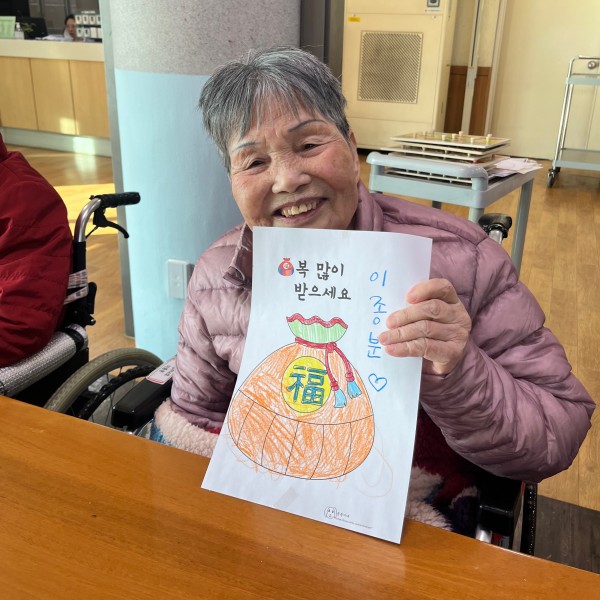 복 많이
받으세요
이종분♡
福